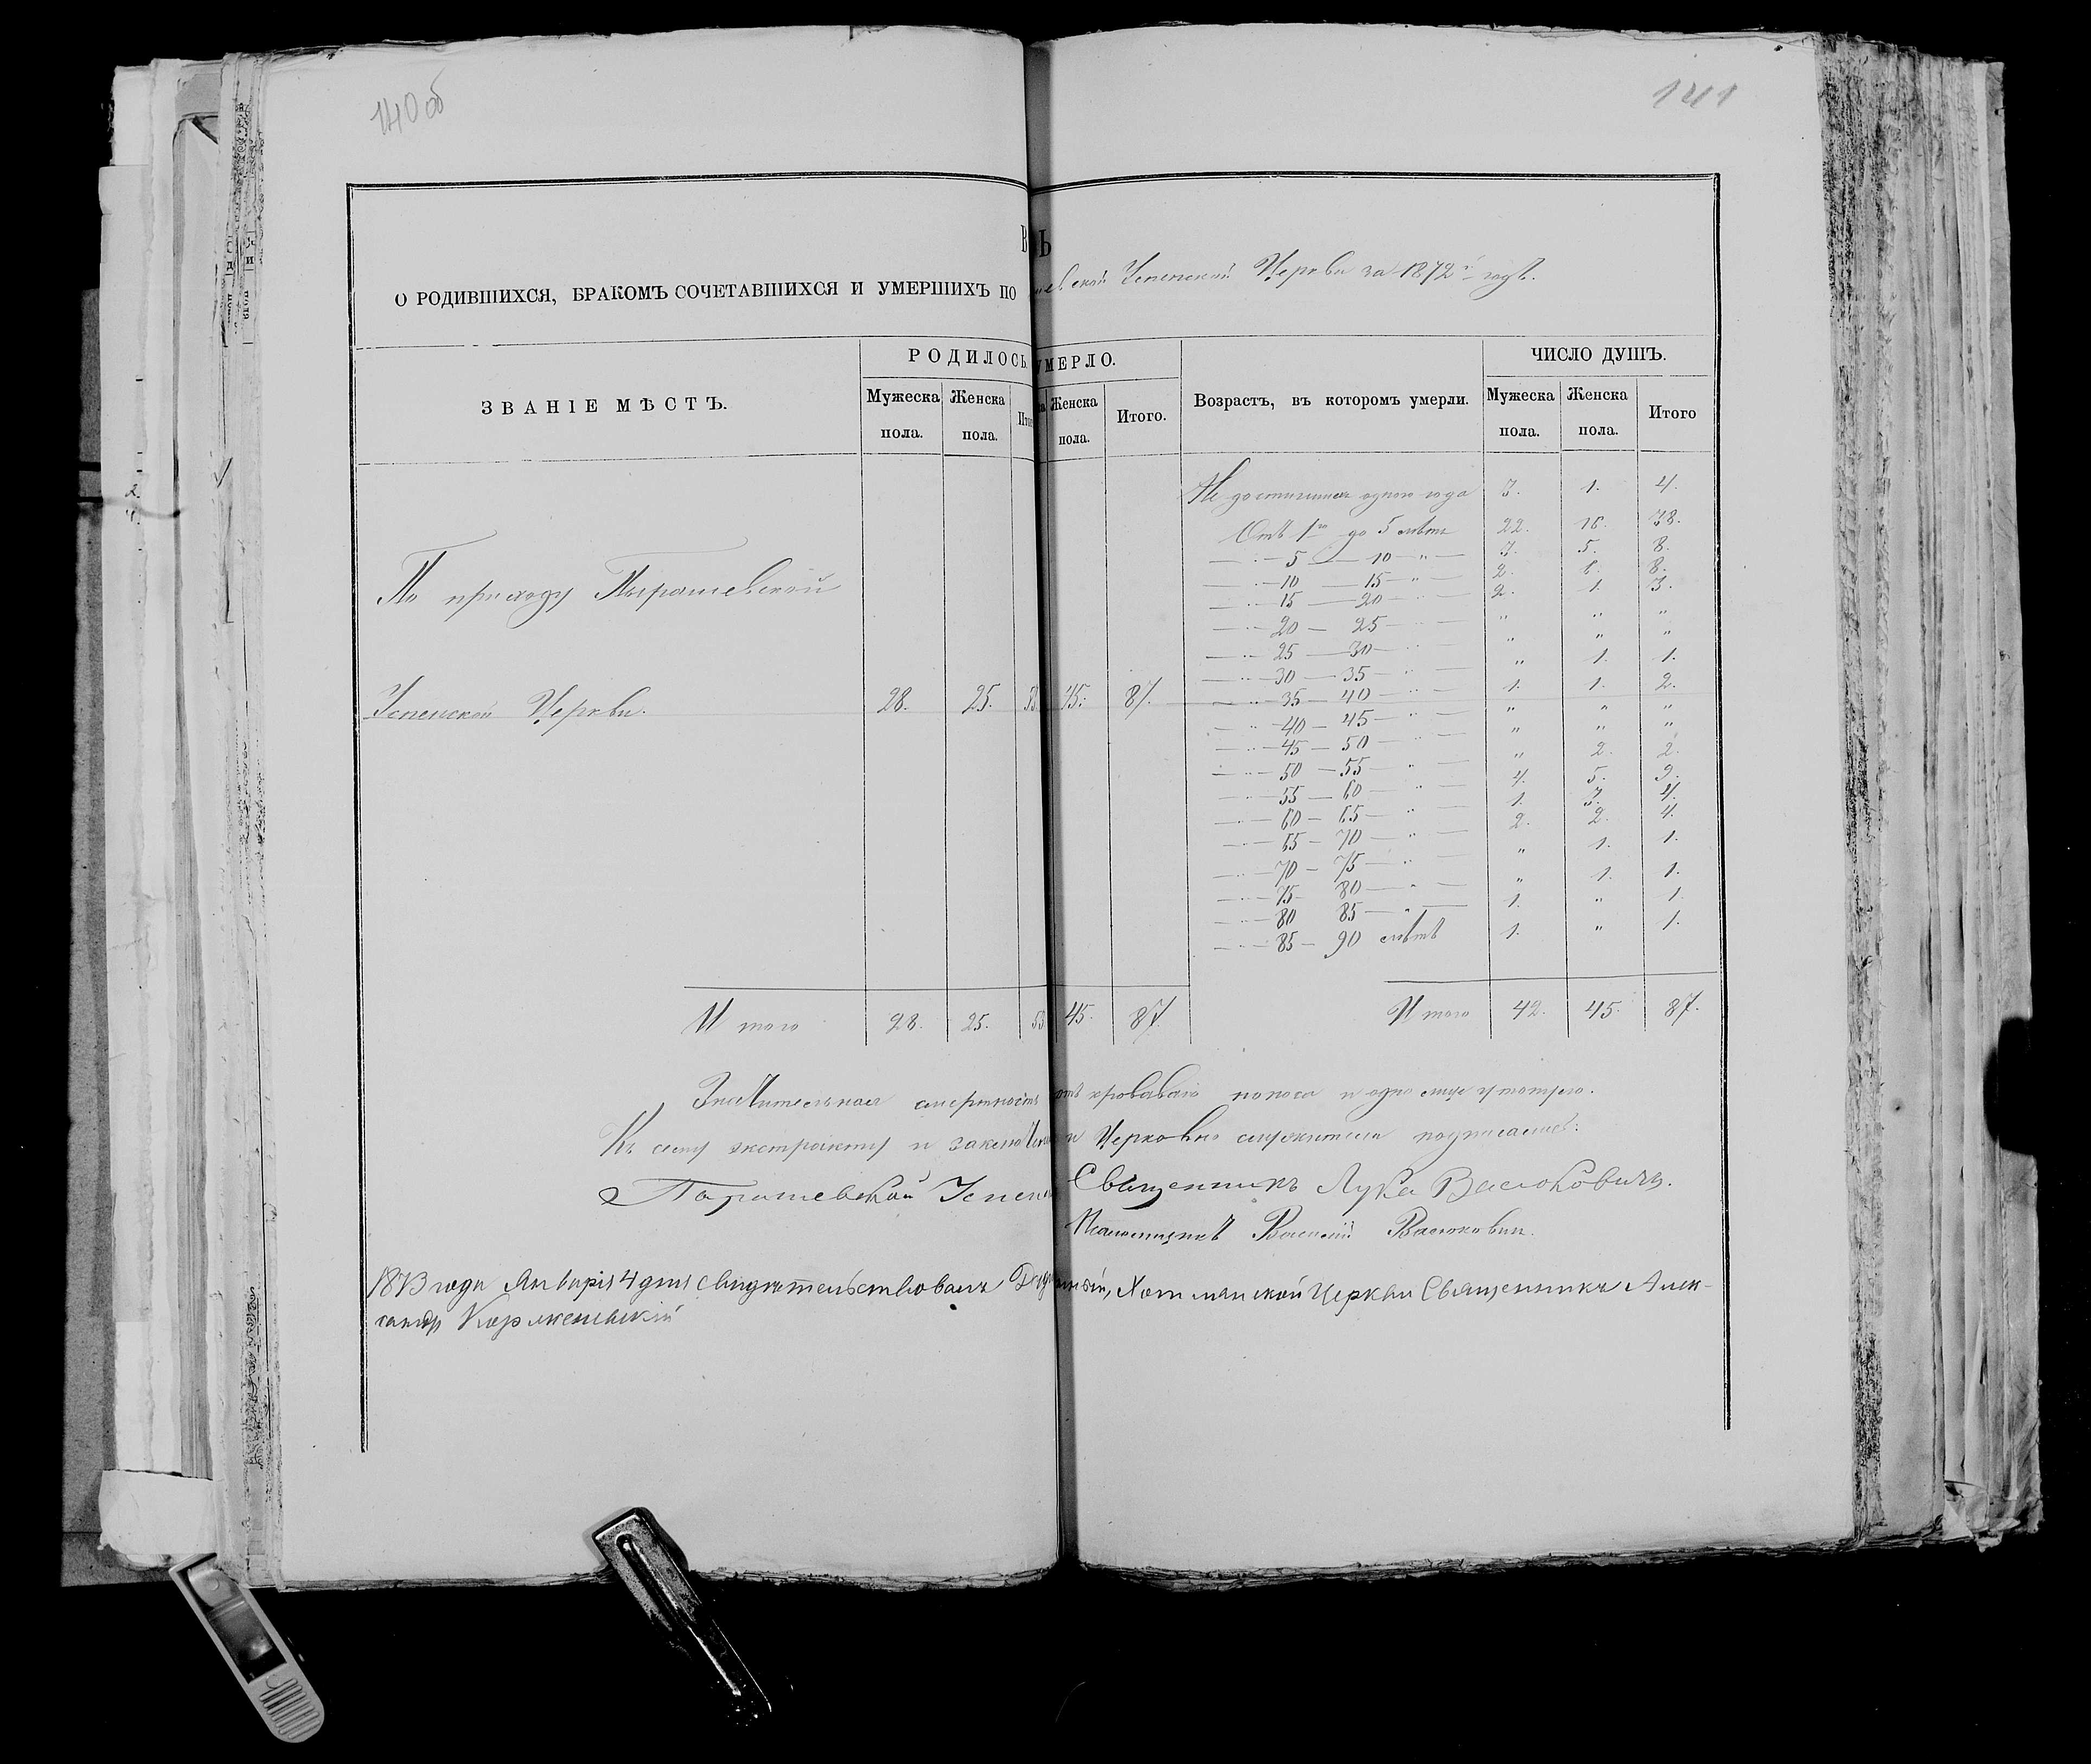 140 об
141
В Ь
О РОДИВШИХСЯ, БРАКОМЪ СОЧЕТАВШИХСЯ И УМЕРШИХЪ ПО
Успенской Церкви за 1872й годъ.
ЗВАНІЕ МѢСТЪ.
РОДИЛОСЬ.
УМЕРЛО.
Мужеска пола.
Женска пола.
Женска пола.
Итого.
Возрастъ, въ которомъ умерли.
ЧИСЛО ДУШЪ.
Мужеска пола.
Женска пола.
Итого
По приходу Пырашевской
Успенской Церкви. 28. 25. 53. 45. 87.
Не достигшихъ одного года 3. 1. 4.
Отъ 1го до 5 лѣтъ 22. 16. 38.
— " — 5 — 10 — " — 3. 5. 8.
— " — 10 — 15 — " — 2. 6. 8.
— " — 15 — 20 — " — 2. 1. 3.
— " — 20 — 25 — " — " " "
— " — 25 — 30 — " — " " "
— " — 30 — 35 — " — " 1. 1.
— " — 35 — 40 — " — 1. 1. 2.
— " — 40 — 45 — " — " " "
— " — 45 — 50 — " — " " "
— " — 50 — 55 — " — " 2. 2.
— " — 55 — 60 — " — 4. 5. 9.
— " — 60 — 65 — " — 1. 3. 4.
— " — 65 — 70 — " — 2. 2. 4.
— " — 70 — 75 — " — " 1. 1.
— " — 75 — 80 — " — " 1. 1.
— " — 80 85 — " — 1. " 1.
— " — 85 — 90 лѣтъ 1. " 1.
Итого 28. 25. 53 45. 87.
Итого 42. 45. 87.
Значительная смертность отъ кроваваго поноса и одно лице
Къ сему экстракту и Церковно служители подписались:
Священникъ Лука Васюковичъ.
Псаломщикъ Василій Васюковичъ.
1873 года Января 4 дня свидѣтельствовалъ Церкви Священникъ Алек-
сандр